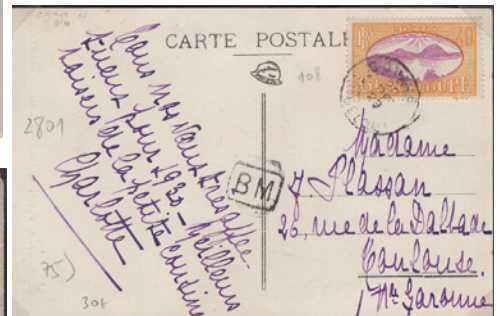 CARTE POSTALE
108
2801
Tous nos voeux très affec-
tueux pour 1930 - Meilleurs
baisers de la petite cousine
Charlotte
BM
Madame
J. Plassan
26, rue de la Dalbade
Toulouse.
Hte Garonne
75)
30€